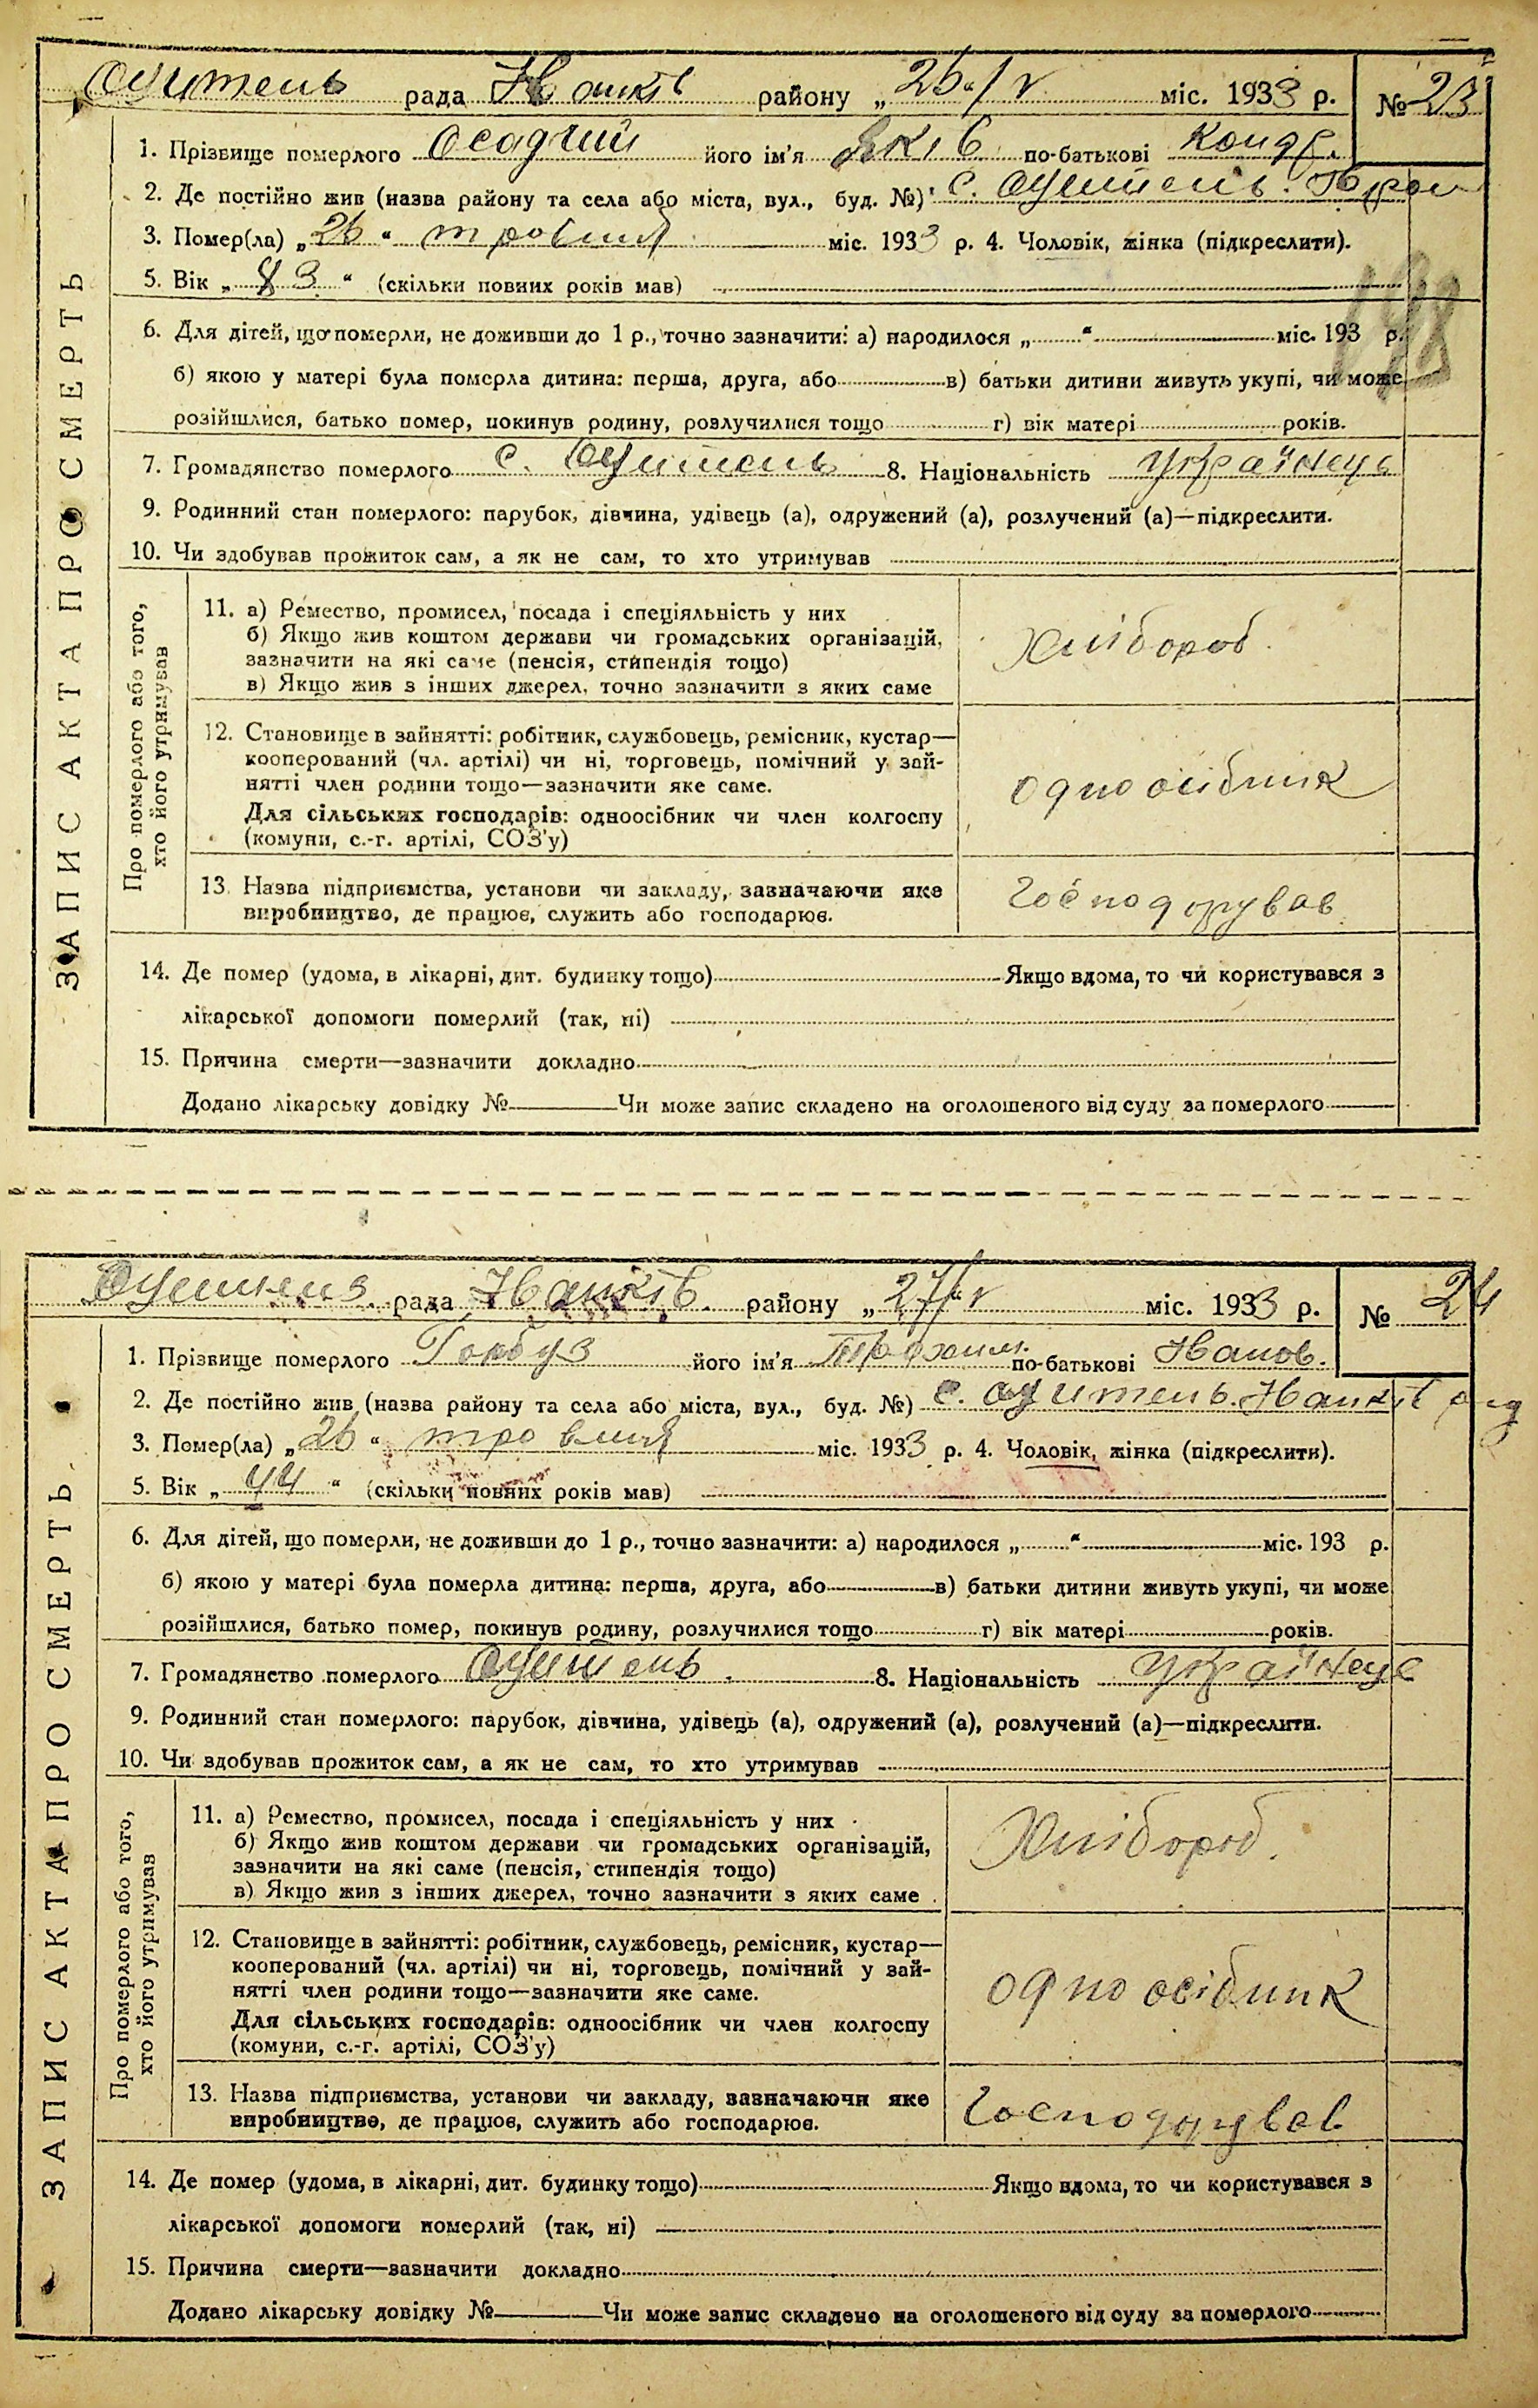 Оситень рада Іванків району „26/V міс. 1933 р. № 23
1. Прізвище померлого Осадчий його ім'я Яків по-батькові Кондр.
2. Де постійно жив (назва району та села або міста, вул., буд. №) с. Оситень
3. Помер(ла) „26“ травня міс. 1933 р. 4. Чоловік, жінка (підкреслити).
5. Вік „ 3 “ (скільки повних років мав)
6. Для дітей, що померли, не доживши до 1 р., точно зазначити: а) народилося „ “ міс. 193 р.
б) якою у матері була померла дитина: перша, друга, або в) батьки дитини живуть укупі, чи може
розійшлися, батько помер, покинув родину, розлучилися тощо г) вік матері років.
7. Громадянство померлого с. Оситень 8. Національність Українець
9. Родинний стан померлого: парубок, дівчина, удівець (а), одружений (а), розлучений (а)—підкреслити.
10. Чи здобував прожиток сам, а як не сам, то хто утримував
ЗАПИС АКТА ПРО СМЕРТЬ
Про померлого або того,
хто його утримував
11. а) Ремество, промисел, посада і спеціяльність у них
б) Якщо жив коштом держави чи громадських організацій,
зазначити на які саме (пенсія, стипендія тощо)
в) Якщо жив з інших джерел, точно зазначити з яких саме
Хлібороб.
12. Становище в зайнятті: робітник, службовець, ремісник, кустар—
кооперований (чл. артілі) чи ні, торговець, помічний у зай-
нятті член родини тощо—зазначити яке саме.
Для сільських господарів: одноосібник чи член колгоспу
(комуни, с.-г. артілі, СОЗ'у)
одноосібник
13. Назва підприємства, установи чи закладу, зазначаючи яке
виробництво, де працює, служить або господарює.
Господарував
14. Де помер (удома, в лікарні, дит. будинку тощо) Якщо вдома, то чи користувався з
лікарської допомоги померлий (так, ні)
15. Причина смерти—зазначити докладно
Додано лікарську довідку № Чи може запис складено на оголошеного від суду за померлого
Оситень рада Іванків. району „27/V міс. 1933 р. № 24
1. Прізвище померлого Гарбуз його ім'я Трохим по-батькові Іванов.
2. Де постійно жив (назва району та села або міста, вул., буд. №) с. Оситень. Іванків
3. Помер(ла) „26“ травня міс. 1933 р. 4. Чоловік, жінка (підкреслити).
5. Вік „44“ (скільки повних років мав)
6. Для дітей, що померли, не доживши до 1 р., точно зазначити: а) народилося „ “ міс. 193 р.
б) якою у матері була померла дитина: перша, друга, або в) батьки дитини живуть укупі, чи може
розійшлися, батько помер, покинув родину, розлучилися тощо г) вік матері років.
7. Громадянство померлого Оситень. 8. Національність Українець
9. Родинний стан померлого: парубок, дівчина, удівець (а), одружений (а), розлучений (а)—підкреслити.
10. Чи здобував прожиток сам, а як не сам, то хто утримував
ЗАПИС АКТА ПРО СМЕРТЬ
Про померлого або того,
хто його утримував
11. а) Ремество, промисел, посада і спеціяльність у них
б) Якщо жив коштом держави чи громадських організацій,
зазначити на які саме (пенсія, стипендія тощо)
в) Якщо жив з інших джерел, точно зазначити з яких саме
Хлібороб.
12. Становище в зайнятті: робітник, службовець, ремісник, кустар—
кооперований (чл. артілі) чи ні, торговець, помічний у зай-
нятті член родини тощо—зазначити яке саме.
Для сільських господарів: одноосібник чи член колгоспу
(комуни, с.-г. артілі, СОЗ'у)
одноосібник
13. Назва підприємства, установи чи закладу, зазначаючи яке
виробництво, де працює, служить або господарює.
Господарував
14. Де помер (удома, в лікарні, дит. будинку тощо) Якщо вдома, то чи користувався з
лікарської допомоги померлий (так, ні)
15. Причина смерти—зазначити докладно
Додано лікарську довідку № Чи може запис складено на оголошеного від суду за померлого